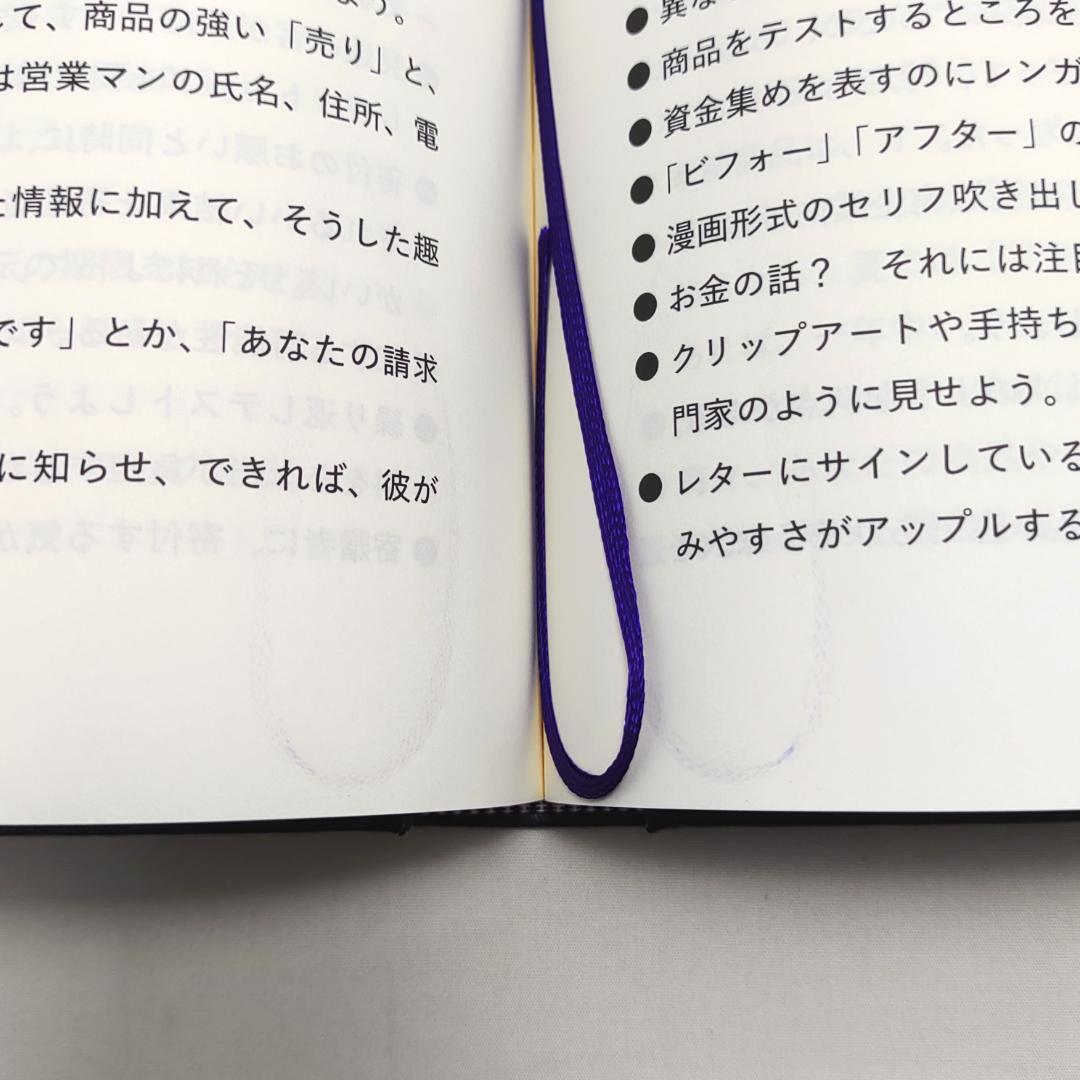 て、商品の強い「売り」と、
は営業マンの氏名、住所、電
情報に加えて、そうした趣
です」とか、「あなたの請求
に知らせ、できれば、彼が
●異な
●商品をテストするところを
●資金集めを表すのにレンガ
●「ビフォー」「アフター」の
●漫画形式のセリフ吹き出し
●お金の話？　それには注目
●クリップアートや手持ち
門家のように見せよう。
●レターにサインしている
みやすさがアップルする